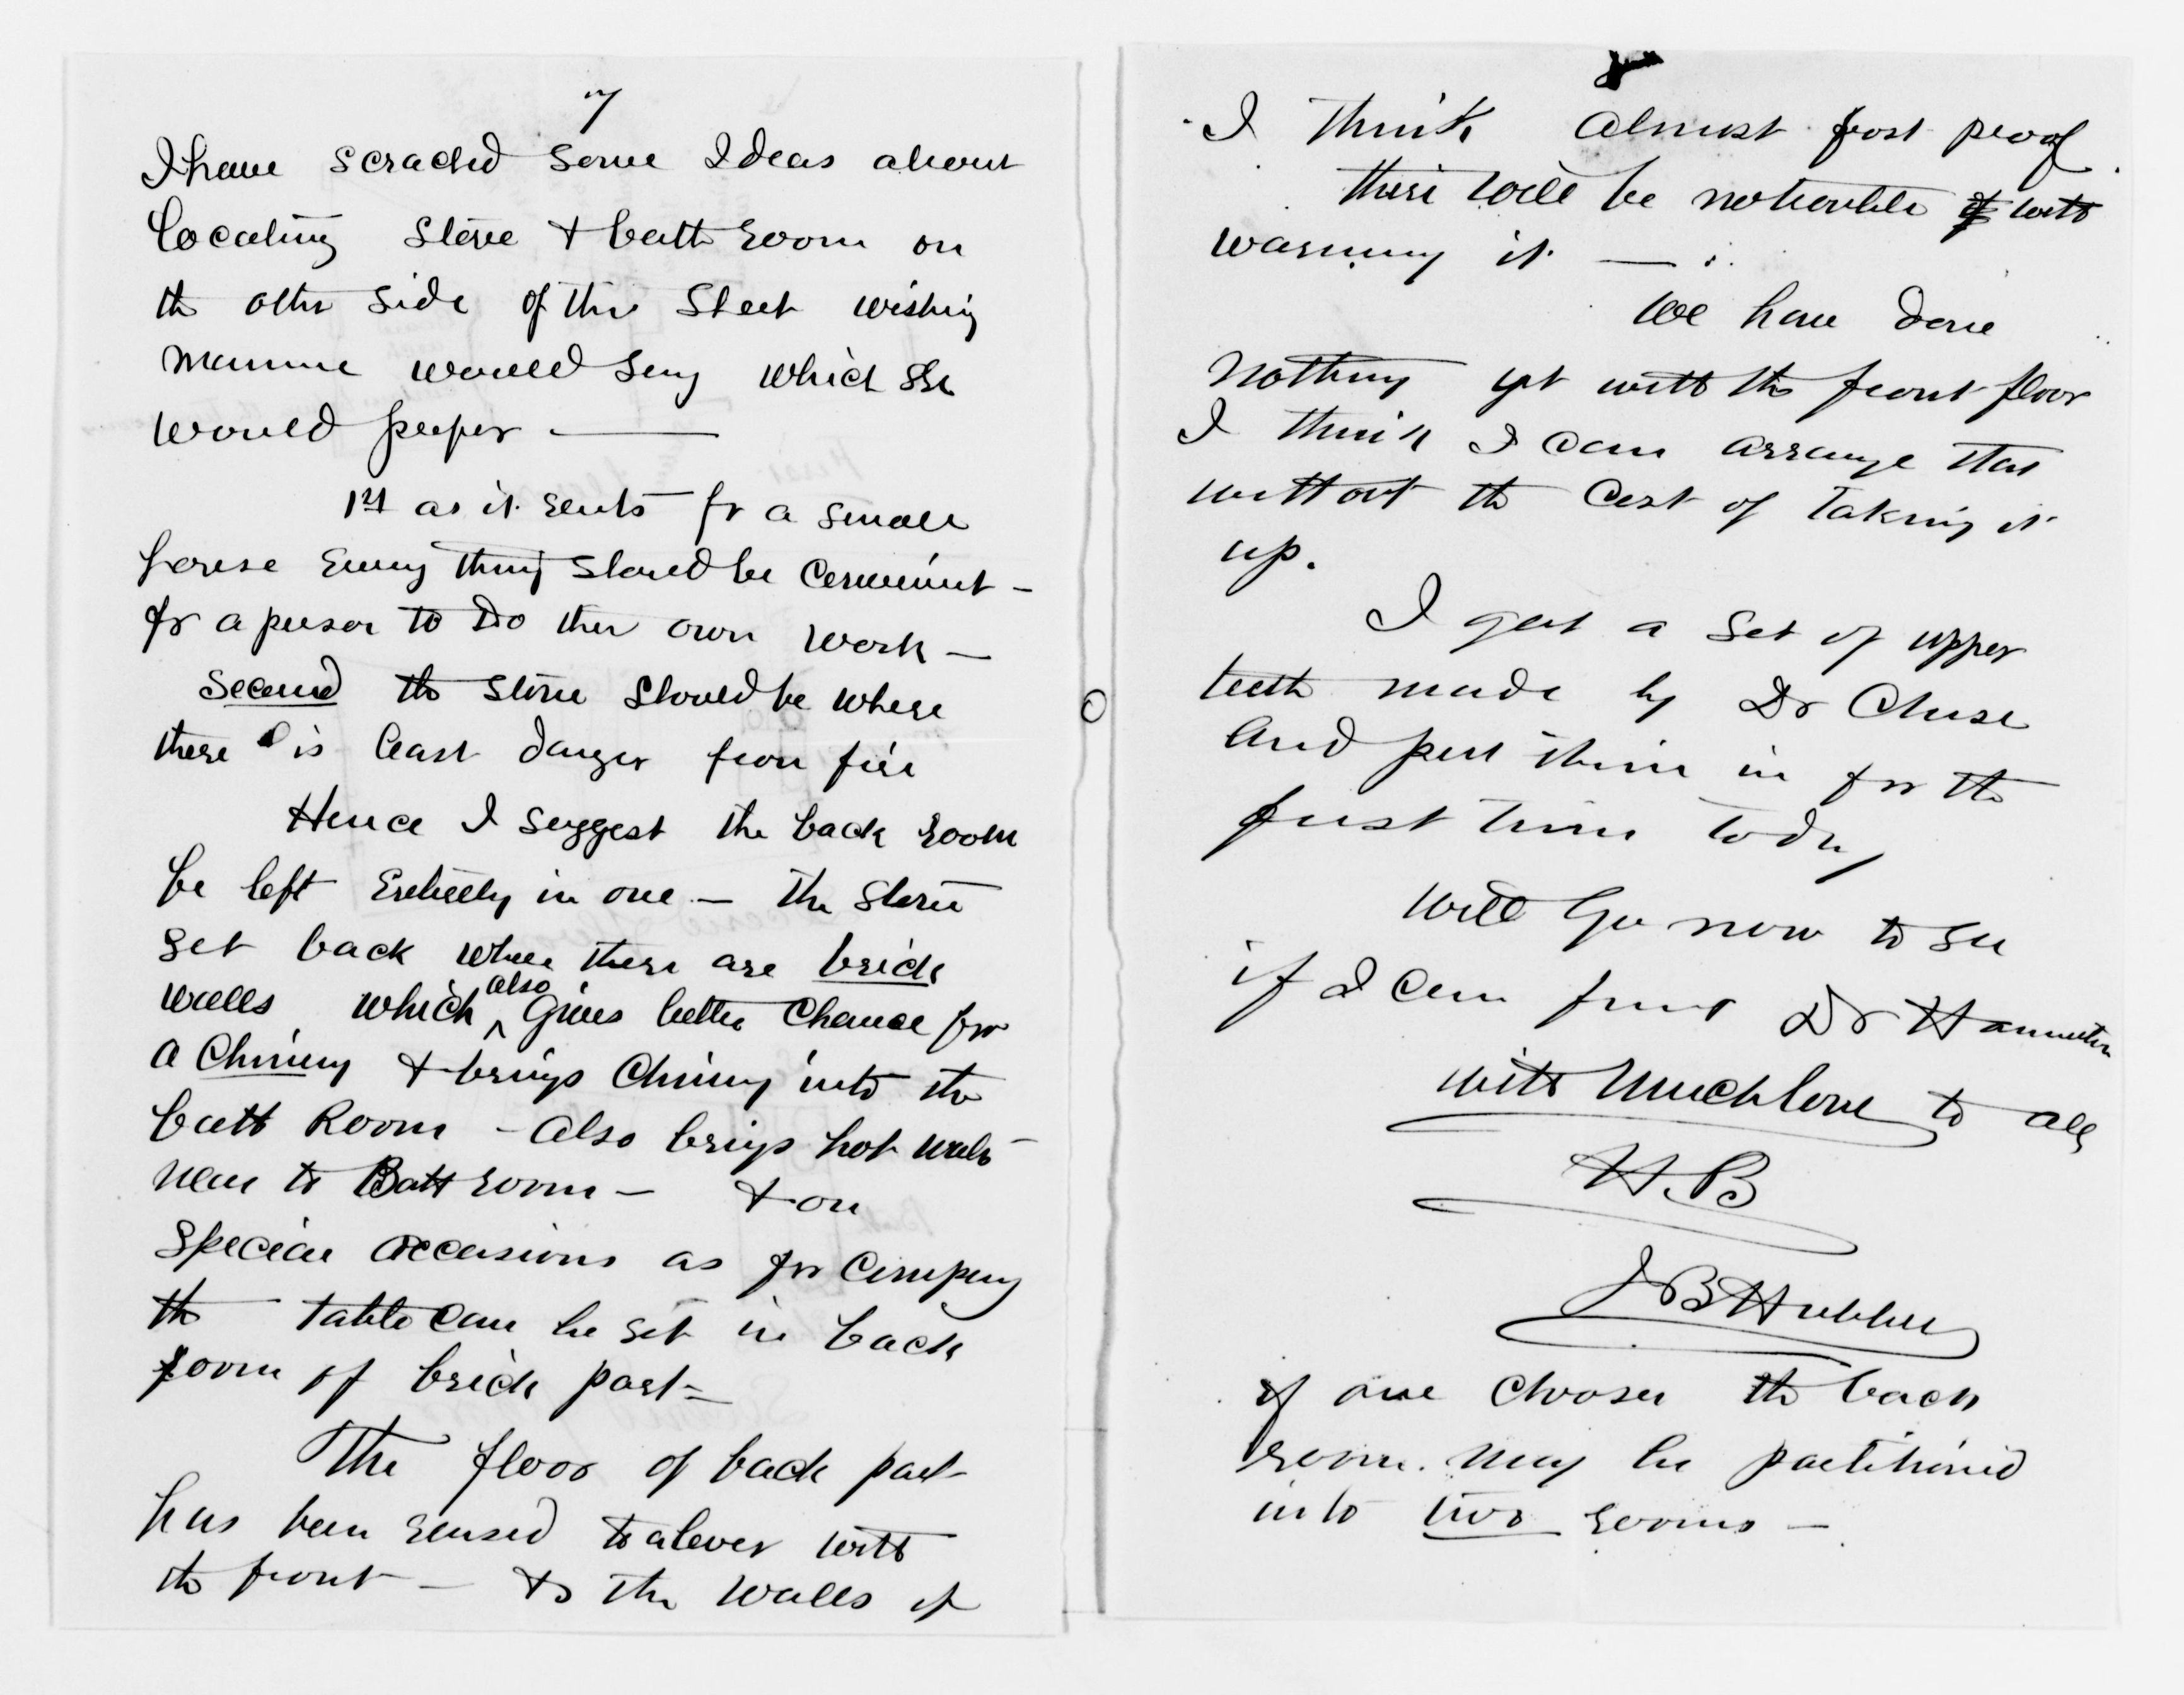 7
I have scrached some Ideas about
Locating Stove & bath room on
th other side of this Sheet wishing
Mamma would say which she
would prefer —
1st as it rents for a small
house Every thing should be convenient -
for a person to Do their own work —
Second the stove should be where
there is least danger from fire
Hence I suggest the back room
be left Entirely in one — The stove
set back where there are brick
walls which also gives better chance for
a Chimny & brings Chimny into the
bath Room - also brings hot water
near to Bath room — & on
special occasions as for Company
the table can be set in back
room of brick part —
The floor of back part
has been raised to a level with
the front — & the walls of
8
I think almost frost proof
there will be no trouble with
warming it —
We have done
nothing yet with the front floor
I think I can arrange that
without the cost of taking it
up.
I got a set of upper
teeth made by Dr Chase
And put them in for the
first time today
Will Go now to see
if I can find Dr
with much love to all
H. B
J B Hubbell
if one chooses the back
room may be partitioned
into two rooms —